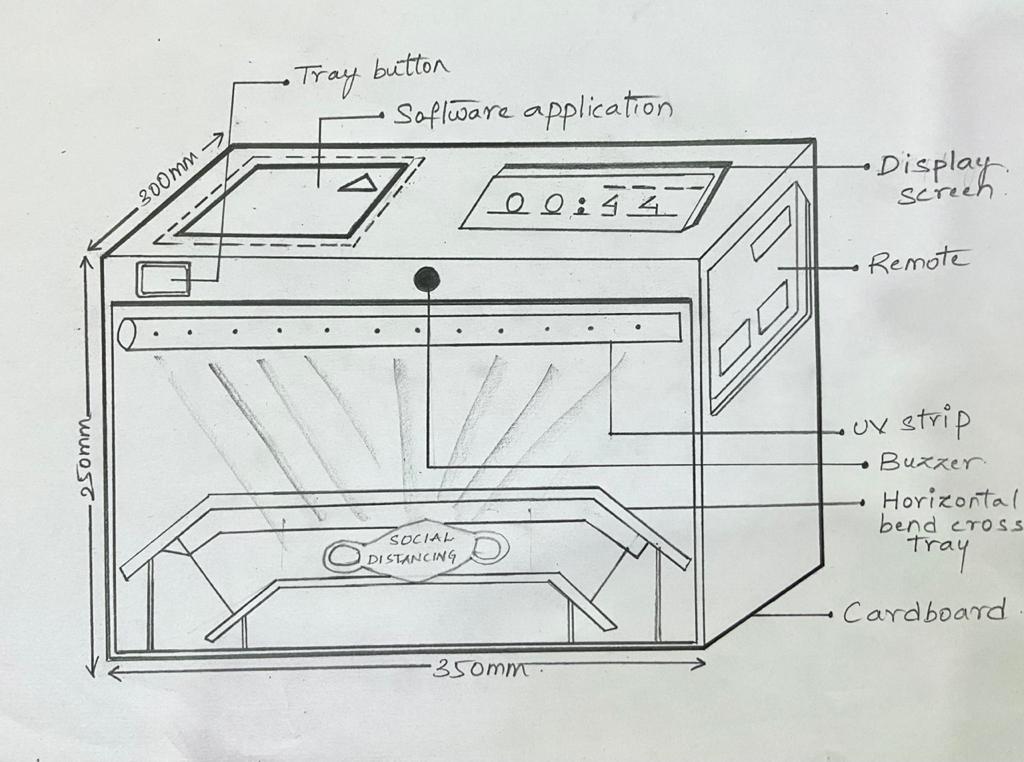 Tray button
Software application
300mm
Display
screen
00:44
Remote
250mm
UV strip
Buzzer
Horizontal
bend cross
tray
SOCIAL
DISTANCING
Cardboard
350mm